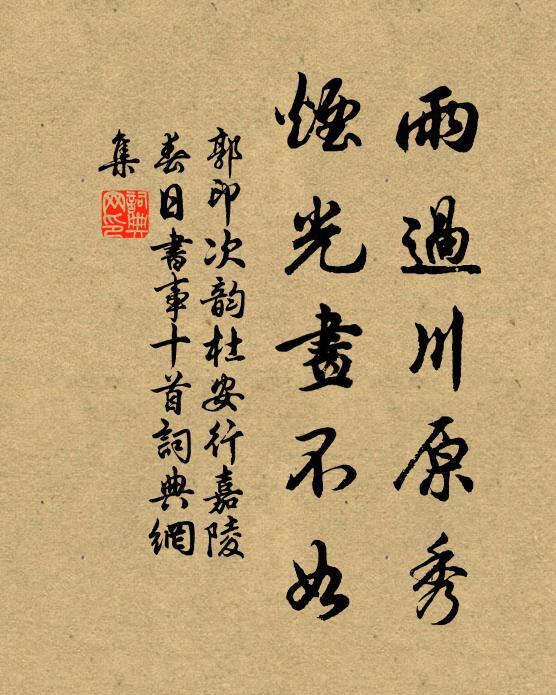 雨過川原秀
煙光畫不如
郭印次韵杜安行嘉陵
春日書事十首詞典網
集
詞典
网印